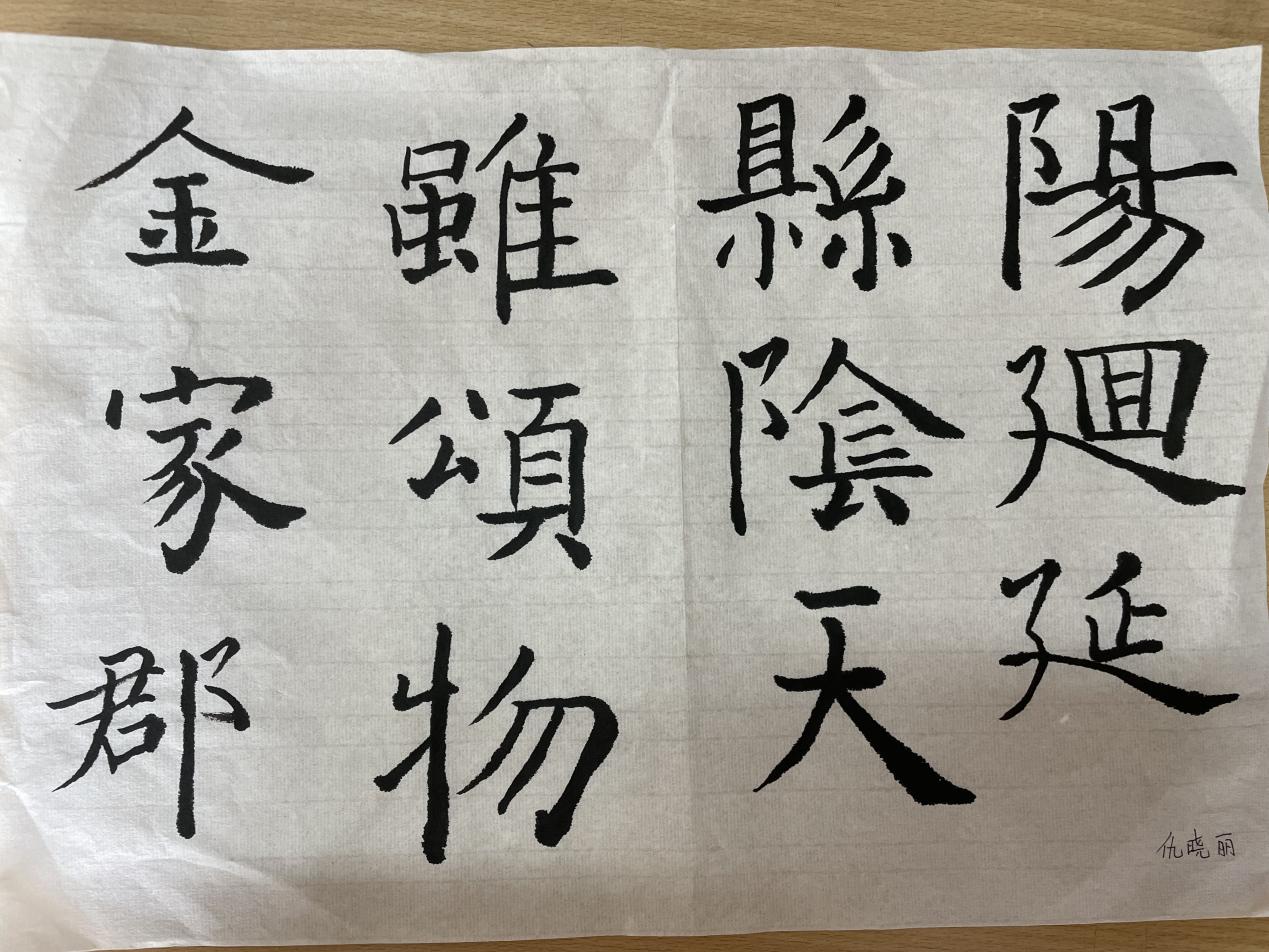 陽廻延
縣陰天
雖頌物
金家郡
仇晓丽